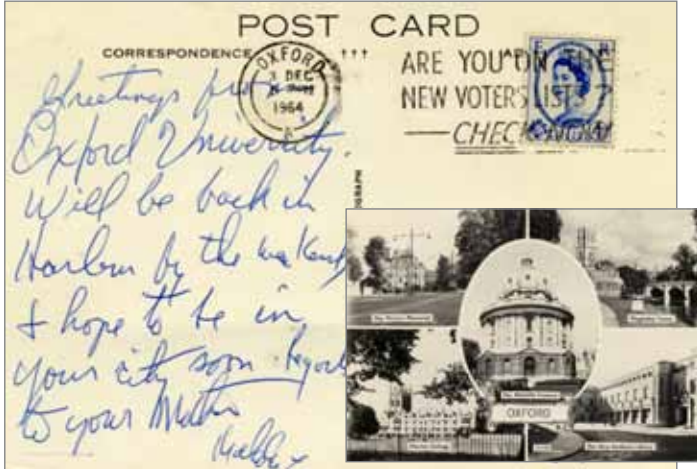 POST CARD
CORRESPONDENCE
OXFORD
3 DEC
1964
A
ARE YOU ON THE
NEW VOTERS LISTS?
CHECK NOW
Greetings from
Oxford University.
Will be back in
Harlem by the weekend
& hope to be in
your city soon. Regards
to your Mother
Malcolm X
OXFORD